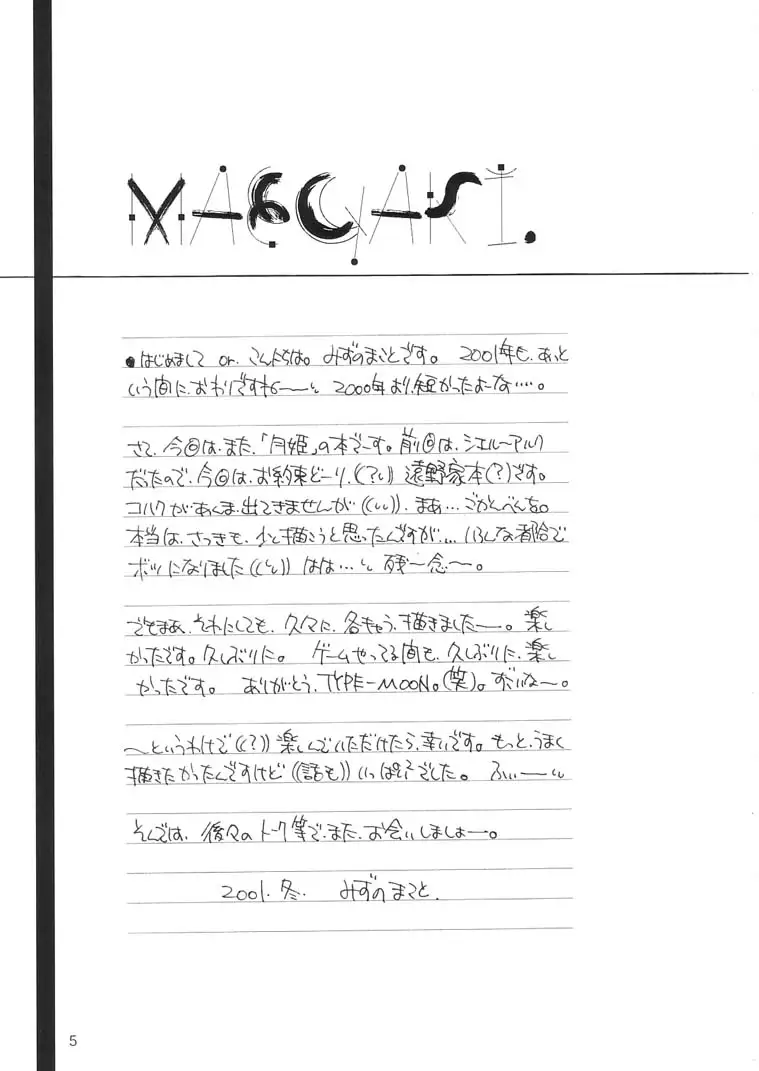 MAEGAKI.
●はじめまして or. こんにちは。みずのまことです。2001年も、あっと
いう間に、おわりですね〜〜い 2000年より、短かったよーな‥‥。
さて、今回は、また、「月姫」の本でーす。前回は、シエル〜アルク
だったので、今回は、お約束どーり、(?い) 遠野家本(?)です。
コハクが、あんま、出てきませんが((いい))、まあ…ごかんべんを。
本当は、さっきも、少し描こうと思ったんですが… いろんな都合で
ボツになりました((い)) はは…い 残〜念〜。
でもまあ、それにしても、久々に、各きゃら、描きましたー。楽し
かったです。久しぶりに。ゲームやってる間も、久しぶりに、楽し
かったです。ありがとう、TYPE-MOON。(笑)。すごいな〜。
〜というわけで((?)) 楽しんでいただけたら、幸いです。もっと、うまく
描きたかったんですけど((話も)) いっぱいでした。ふぃーーい
そんでは、後々のトーク等で、また、お会いしましょー。
2001. 冬. みずのまこと.
5